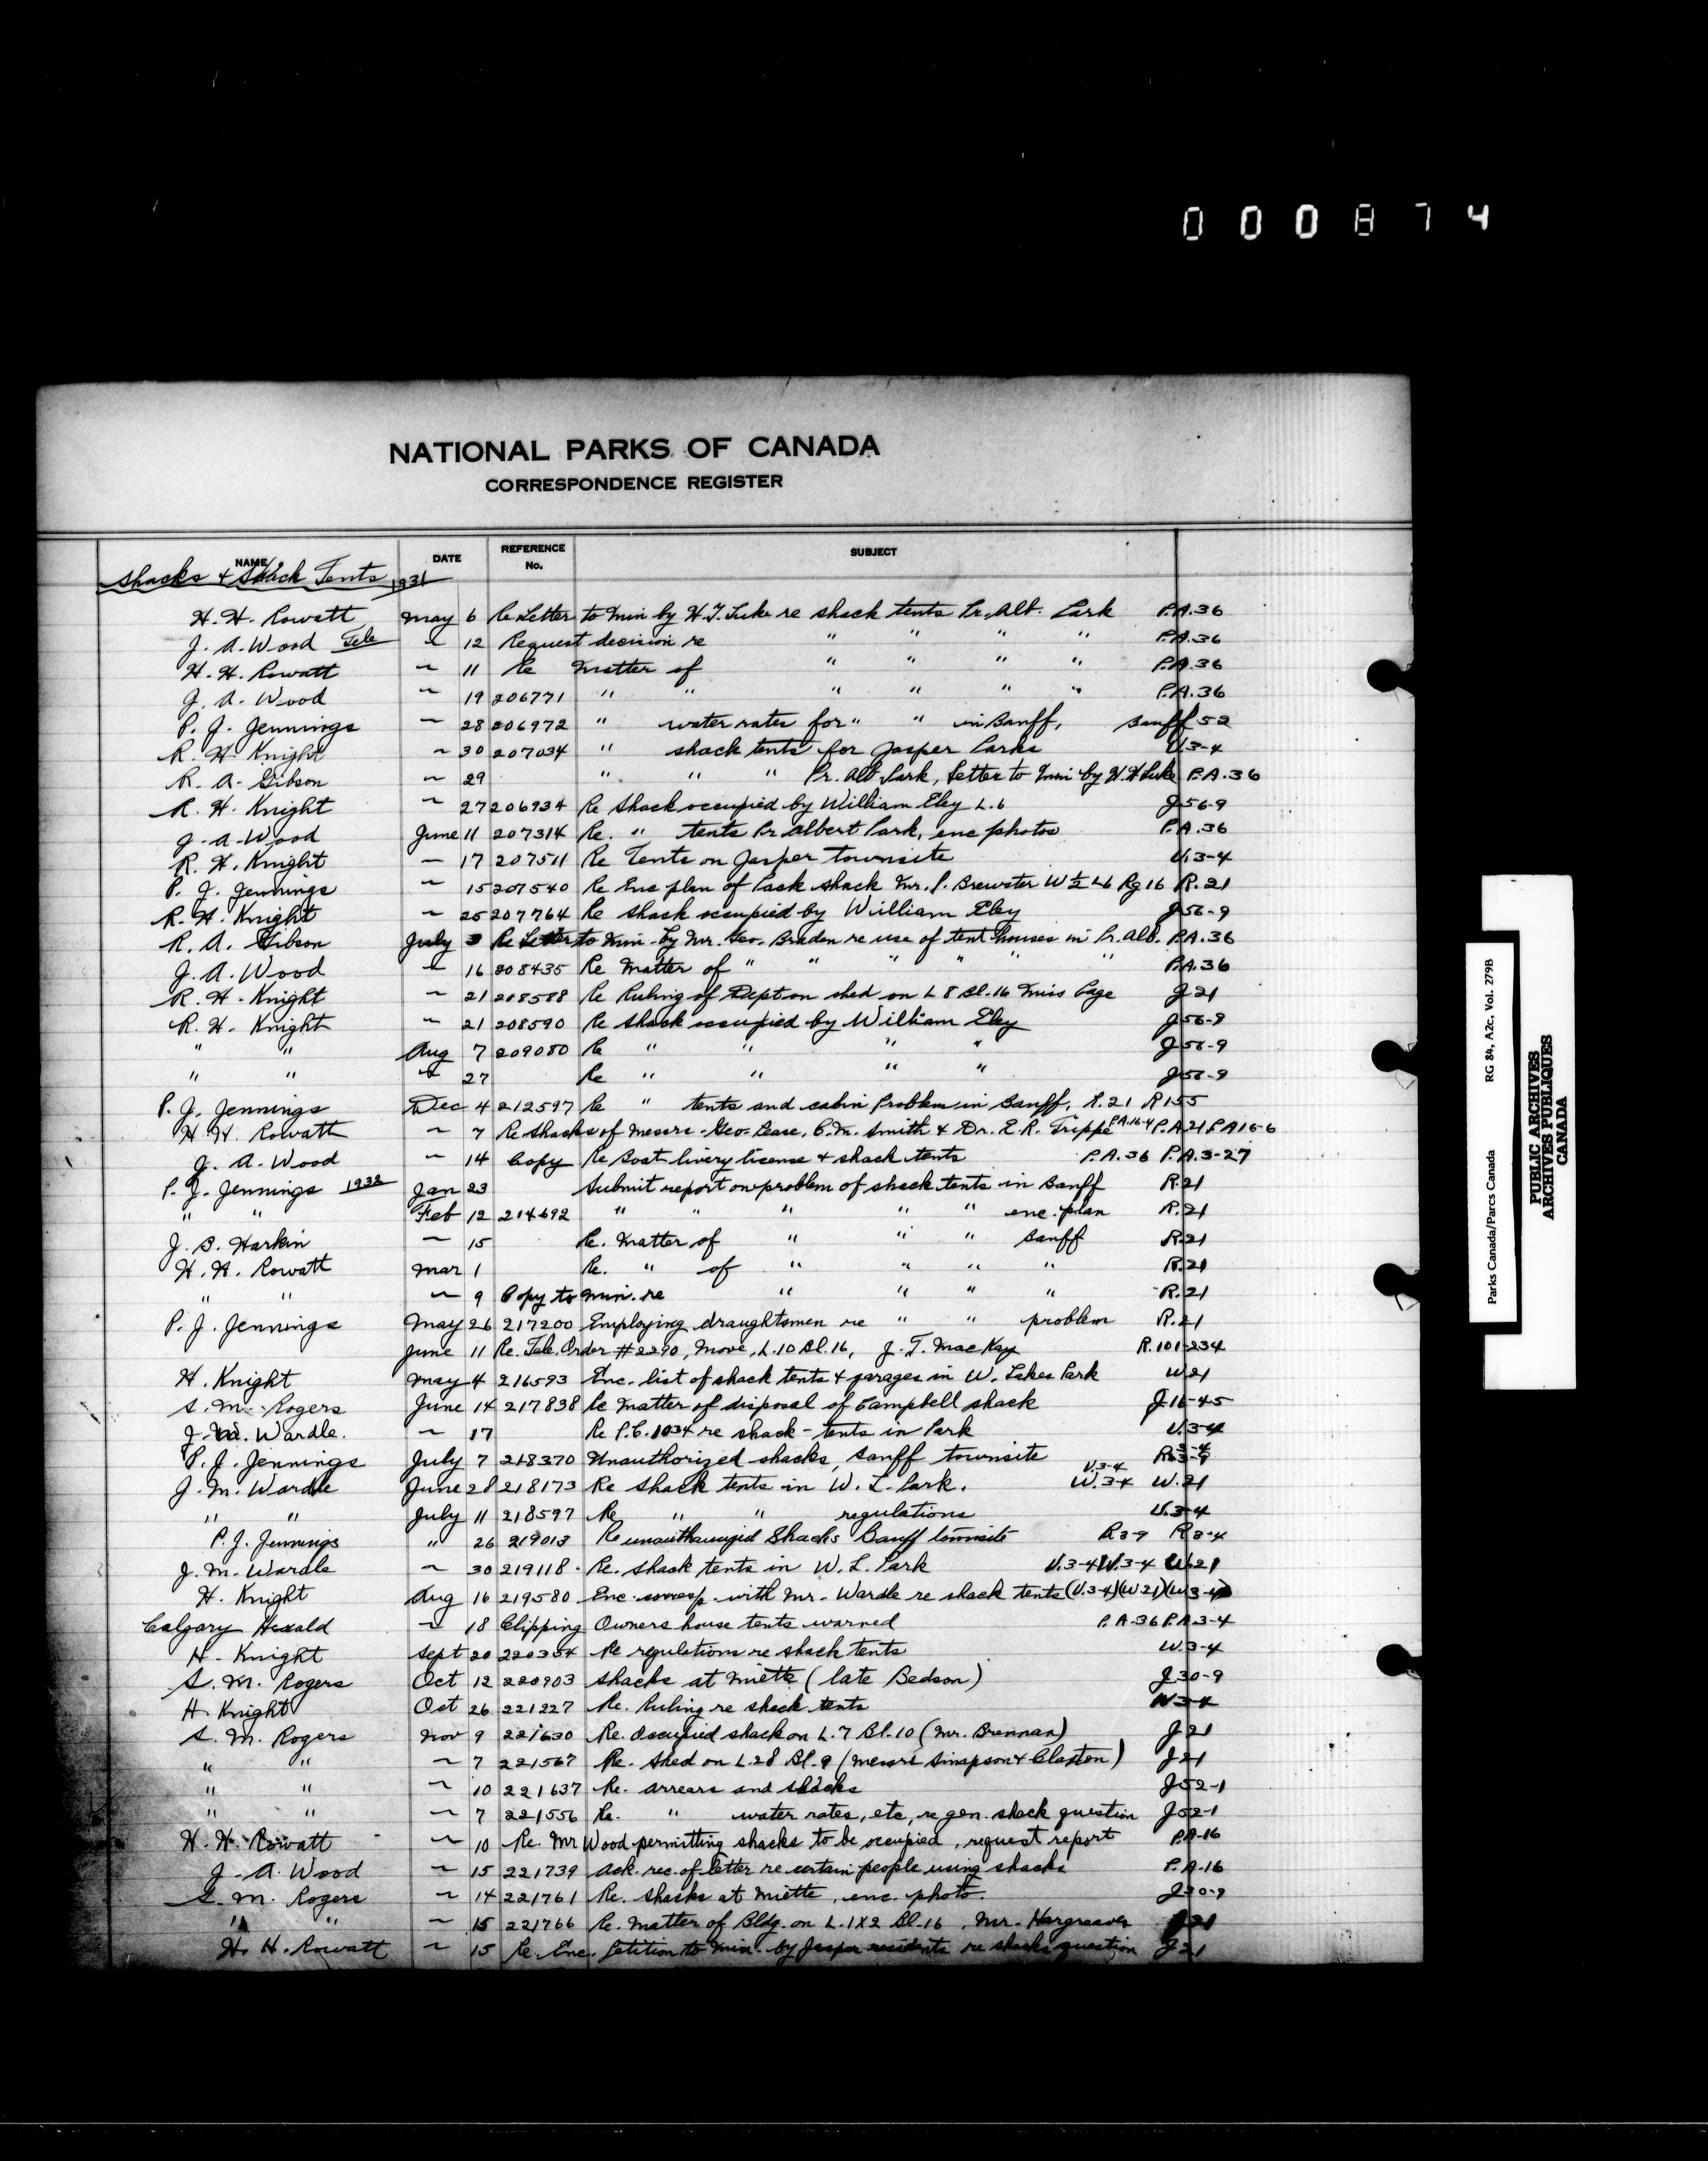 000874
NATIONAL PARKS OF CANADA
CORRESPONDENCE REGISTER
NAME DATE REFERENCE No. SUBJECT
Shacks & Shack Tents 1931
H. H. Rowatt May 6 Re Letter to Min by H.T. Luke re shack tents Pr. Alb. Park P.A.36
J. A. Wood Tele ~ 12 Request decision re " " " " P.A.36
H. H. Rowatt ~ 11 Re Matter of " " " " P.A.36
J. A. Wood ~ 19 206771 " " " " " " P.A.36
P. J. Jennings ~ 28 206972 " water rates for " " in Banff, Banff 52
R. H. Knight ~ 30 207034 " shack tents for Jasper Parks U.3-4
R. A. Gibson ~ 29 " " " Pr. Alb. Park, Letter to Min by H. H Luke P.A.36
R. H. Knight ~ 27 206934 Re Shack occupied by William Eley L.6 J56-9
J. A. Wood June 11 207314 Re. " tents Pr Albert Park, enc photos P.A.36
R. H. Knight ~ 17 207511 Re Tents on Jasper townsite U.3-4
P. J. Jennings ~ 15 207540 Re Enc plan of Pack shack Mr. P. Brewster W½ L6 Rg 16 R.21
R. H. Knight ~ 25 207764 Re shack occupied by William Eley J56-9
R. A. Gibson July 3 Re Letter to Min by Mr. Geo. Braden re use of tent houses in Pr. Alb. P.A.36
J. A. Wood ~ 16 208435 Re Matter of " " " " " " P.A.36
R. H. Knight ~ 21 208588 Re Ruling of Dept on shed on L 8 Bl.16 Miss Page J21
R. H. Knight ~ 21 208590 Re Shack occupied by William Eley J56-9
" " Aug 7 209080 Re " " " " J56-9
" " ~ 27 Re " " " " J56-9
P. J. Jennings Dec 4 212597 Re " tents and cabin Problem in Banff, R.21 R155
H. H. Rowatt ~ 7 Re Shacks of Messrs. Geo. Pease, C.M. Smith & Dr. E.R. Trippe P.A.16-4 P.A21 P.A16-6
J. A. Wood ~ 14 Copy Re Boat livery license & shack tents P.A.36 P.A.3-27
P. J. Jennings 1932 Jan 23 Submit report on problem of shack tents in Banff R.21
" " Feb 12 214692 " " " " " enc. plan R.21
J. B. Harkin ~ 15 Re. Matter of " " " Banff R.21
H. H. Rowatt Mar 1 Re. " of " " " " R.21
" " ~ 9 Copy to Min. re " " " " R.21
P. J. Jennings May 26 217200 Employing draughtsmen re " " problem R.21
June 11 Re. Tele. Order #2290, Move, L.10 Bl.16, J. T. MacKay R.101-234
H. Knight May 4 216593 Enc. list of shack tents & garages in W. Lakes Park W21
S. M. Rogers June 14 217838 Re Matter of disposal of Campbell shack J16-45
J. M. Wardle. ~ 17 Re P.C.1034 re shack-tents in Park U.3-4
P. J. Jennings July 7 218370 Unauthorized shacks, Banff townsite R3-9 3-4
J. M. Wardle June 28 218173 Re Shack tents in W. L. Park. U.3-4 W.3-4 W.21
" " July 11 218597 Re " " regulations U.3-4
P. J. Jennings " 26 219013 Re unauthaurized Shacks Banff townsite R3-9 R3-4
J. M. Wardle ~ 30 219118 Re. shack tents in W. L. Park U.3-4 W.3-4 W21
H. Knight Aug 16 219580 Enc. corresp. with Mr. Wardle re shack tents (U.3-4)(W21)(W3-4)
Calgary Herald ~ 18 Clipping Owners house tents warned P.A.36 P.A3-4
H. Knight Sept 20 220354 Re regulations re shack tents W.3-4
S. M. Rogers Oct 12 220903 Shacks at Miette (late Bedson) J30-9
H. Knight Oct 26 221227 Re. Ruling re shack tents W3-4
S. M. Rogers Nov 9 221630 Re. Occupied shack on L.7 Bl.10 (Mr. Brennan) J21
" " ~ 7 221567 Re. Shed on L.28 Bl.9 (Messrs Simpson & Claxton) J21
" " ~ 10 221637 Re. arrears and shacks J52-1
" " ~ 7 221556 Re. " water rates, etc, re gen. shack question J52-1
H. H. Rowatt ~ 10 Re. Mr Wood permitting shacks to be occupied, request report P.A-16
J. A. Wood ~ 15 221739 Ack. rec. of letter re certain people using shacks P.A-16
S. M. Rogers ~ 14 221761 Re. Shacks at Miette, enc. photo. J30-9
" " ~ 15 221766 Re. Matter of Bldg. on L.1X2 Bl.16, Mr. Hargreaves J21
H. H. Rowatt ~ 15 Re. Enc. Petition to Min. by Jasper residents re shacks question J21
Parks Canada/Parcs Canada RG 84, A2c, Vol. 279B
PUBLIC ARCHIVES
ARCHIVES PUBLIQUES
CANADA